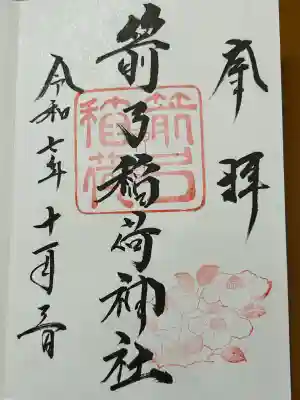 奉拝
箭弓稲荷神社
箭弓
稲荷
令和七年十月三日